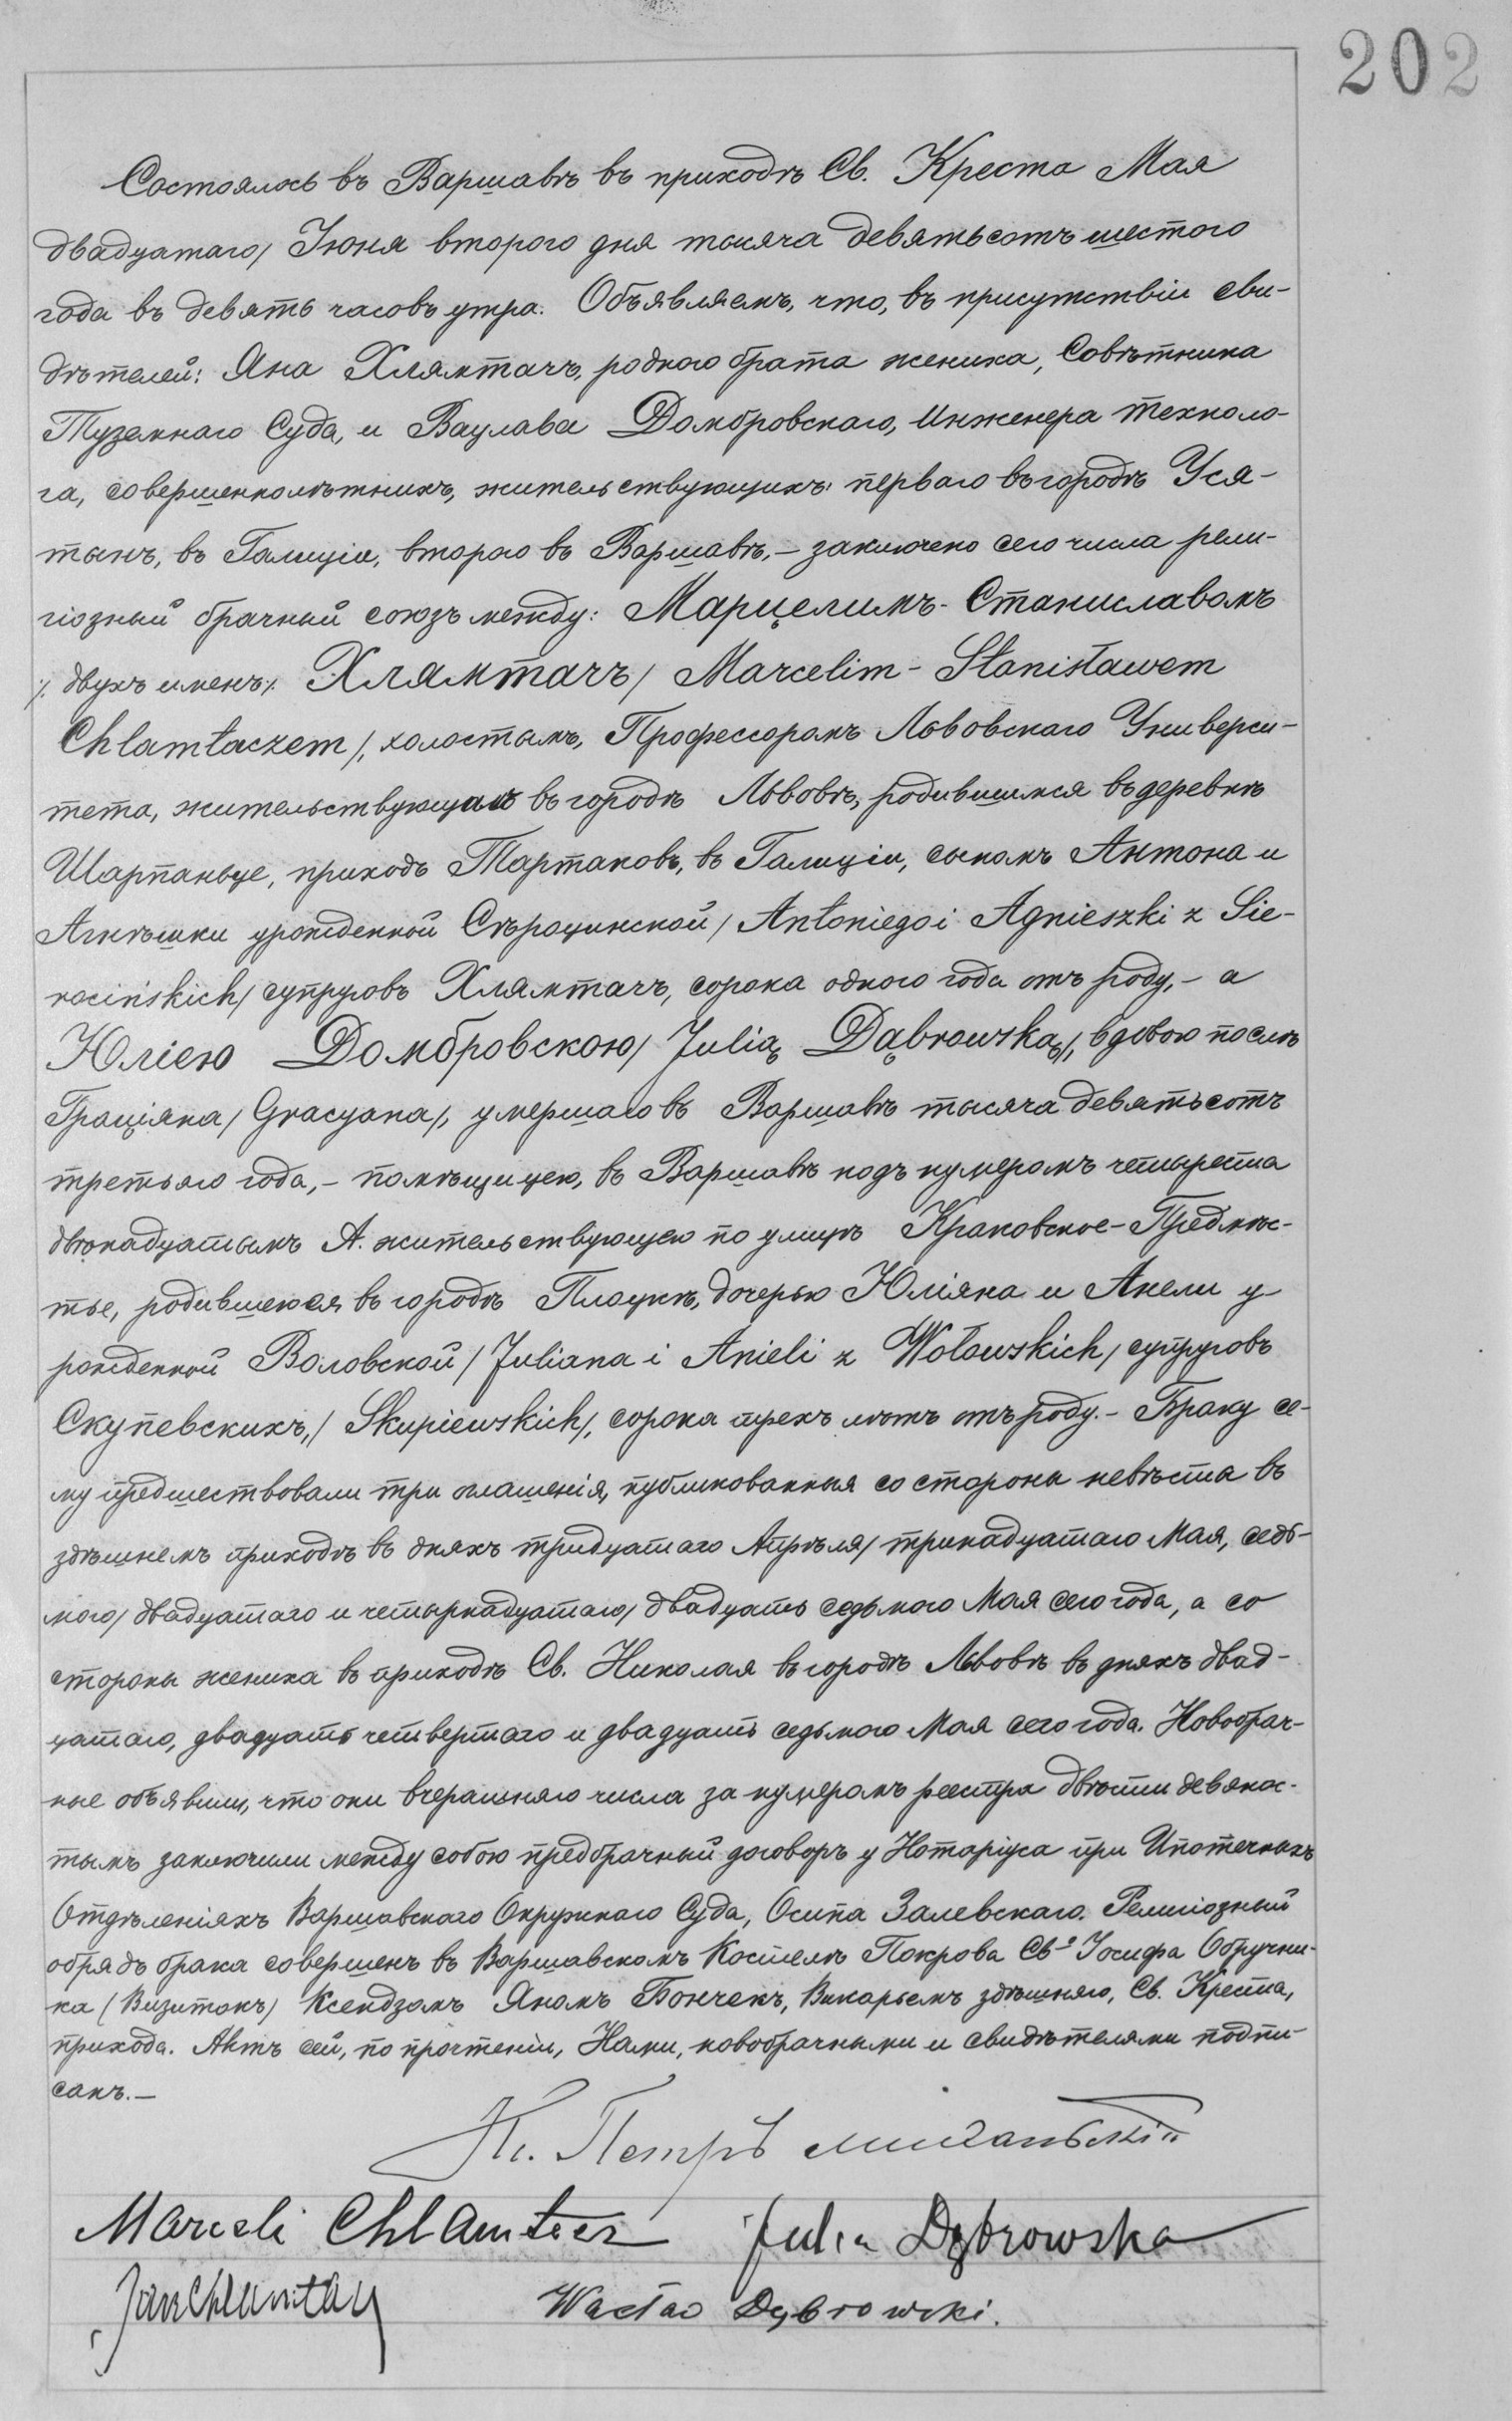 202
Состоялось въ Варшавѣ въ приходѣ Св. Креста Мая
двадцатаго/ Іюня второго дня тысяча девятьсотъ шестого
года въ девять часовъ утра. Объявляемъ, что, въ присутствіи сви-
дѣтелей: Яна Хлямтачъ, родного брата жениха, Совѣтника
Туземнаго Суда, и Вацлава Домбровскаго, Инженера техноло-
га, совершеннолѣтнихъ, жительствующихъ: перваго въ городѣ Уся-
тынъ, въ Галиціи, второго въ Варшавѣ, – заключено сего числа рели-
гіозный брачный союзъ между: Марцелимъ-Станиславомъ
/: двухъ именъ:/ Хлямтачъ/ Marcelim-Stanisławem
Chlamtaczem/, холостымъ, Профессоромъ Львовскаго Универси-
тета, жительствующимъ въ городѣ Львовѣ, родившимся въ деревнѣ
Шарпаньце, приходъ Тартаковъ, въ Галиціи, сыномъ Антона и
Агнѣшки урожденной Сѣроцинской/ Antoniego i Agnieszki z Sie-
rocińskich/ супруговъ Хлямтачъ, сорока одного года отъ роду, – а
Юліею Домбровскою/ Julią Dąbrowską/, вдовою послѣ
Граціяна/ Gracyana/, умершаго въ Варшавѣ тысяча девятьсотъ
третьяго года, – помѣщицею, въ Варшавѣ подъ нумеромъ четыреста
двѣнадцатымъ А. жительствующею по улицѣ Краковское-Предмѣс-
тье, родившеюся въ городѣ Плоцкѣ, дочерью Юліяна и Анели у-
рожденной Воловской/ Juliana i Anieli z Wołowskich/ супруговъ
Скупевскихъ,/ Skupiewskich/, сорока трехъ лѣтъ отъ роду. – Браку се-
му предшествовали три оглашенія, публикованныя со стороны невѣсты въ
здѣшнемъ приходѣ въ дняхъ тридцатаго Апрѣля/ тринадцатаго Мая, седь-
мого/ двадцатаго и четырнадцатаго/ двадцать седьмого Мая сего года, а со
стороны жениха въ приходѣ Св. Николая въ городѣ Львовѣ въ дняхъ двад-
цатаго, двадцать четвертаго и двадцать седьмого Мая сего года. Новобрач-
ные объявили, что они вчерашняго числа за нумеромъ реестра двѣсти девянос-
тымъ заключили между собою предбрачный договоръ у Нотаріуса при Ипотечныхъ
Отдѣленіяхъ Варшавскаго Окружнаго Суда, Осипа Залевскаго. Религіозный
обрядъ брака совершенъ въ Варшавскомъ Костелѣ Покрова Св° Іосифа Обручни-
ка (Визитокъ) Ксендзомъ Яномъ Бончекъ, Викарьемъ здѣшняго, Св. Креста,
прихода. Актъ сей, по прочтеніи, Нами, новобрачными и свидѣтелями подпи-
санъ. –
Кс. Петръ
Marceli Chlamtacz Julia Dąbrowska
Jan Chlamtacz Wacław Dąbrowski.